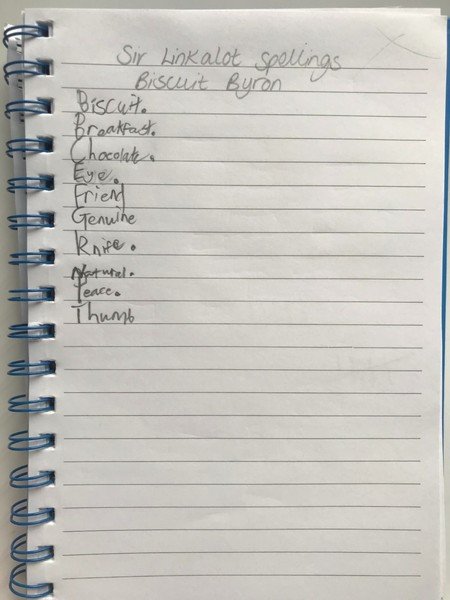 Sir Linkalot Spellings
Biscuit Byron
Biscuit.
Breakfast.
Chocolate.
Eye.
Friend
Genuine
Knife.
Natural.
Peace.
Thumb